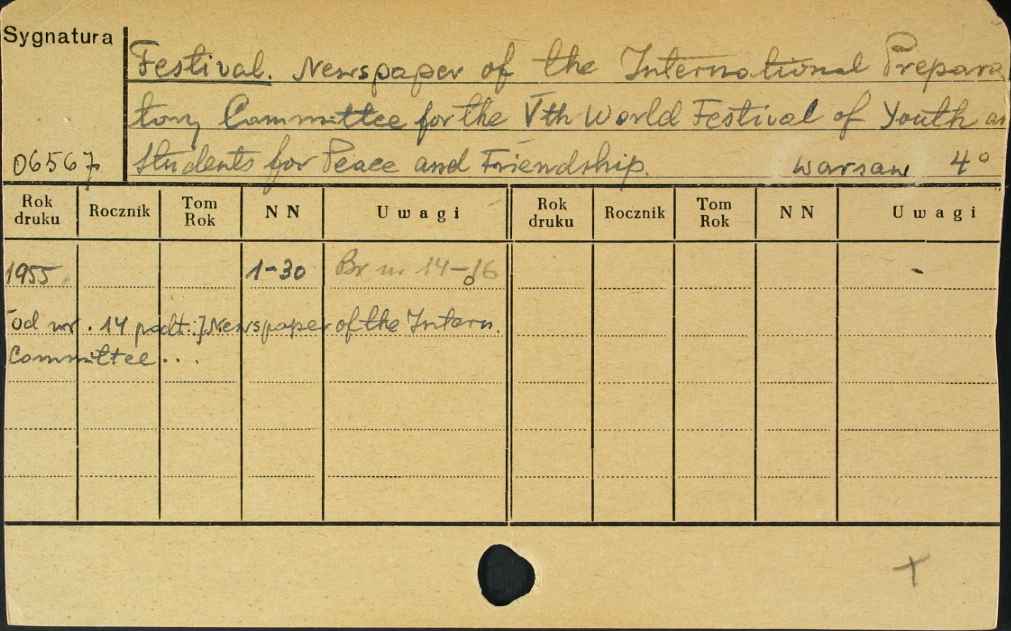 Sygnatura
Festival. Newspaper of the International Prepara
tory Committee for the Vth World Festival of Youth an
06567 Students for Peace and Friendship. Warsaw 4°
Rok druku Rocznik Tom Rok NN Uwagi Rok druku Rocznik Tom Rok NN Uwagi
1955 1-30 Br nr 14-16
[od nr. 14 podt:] Newspaper of the Intern.
Committee...
+